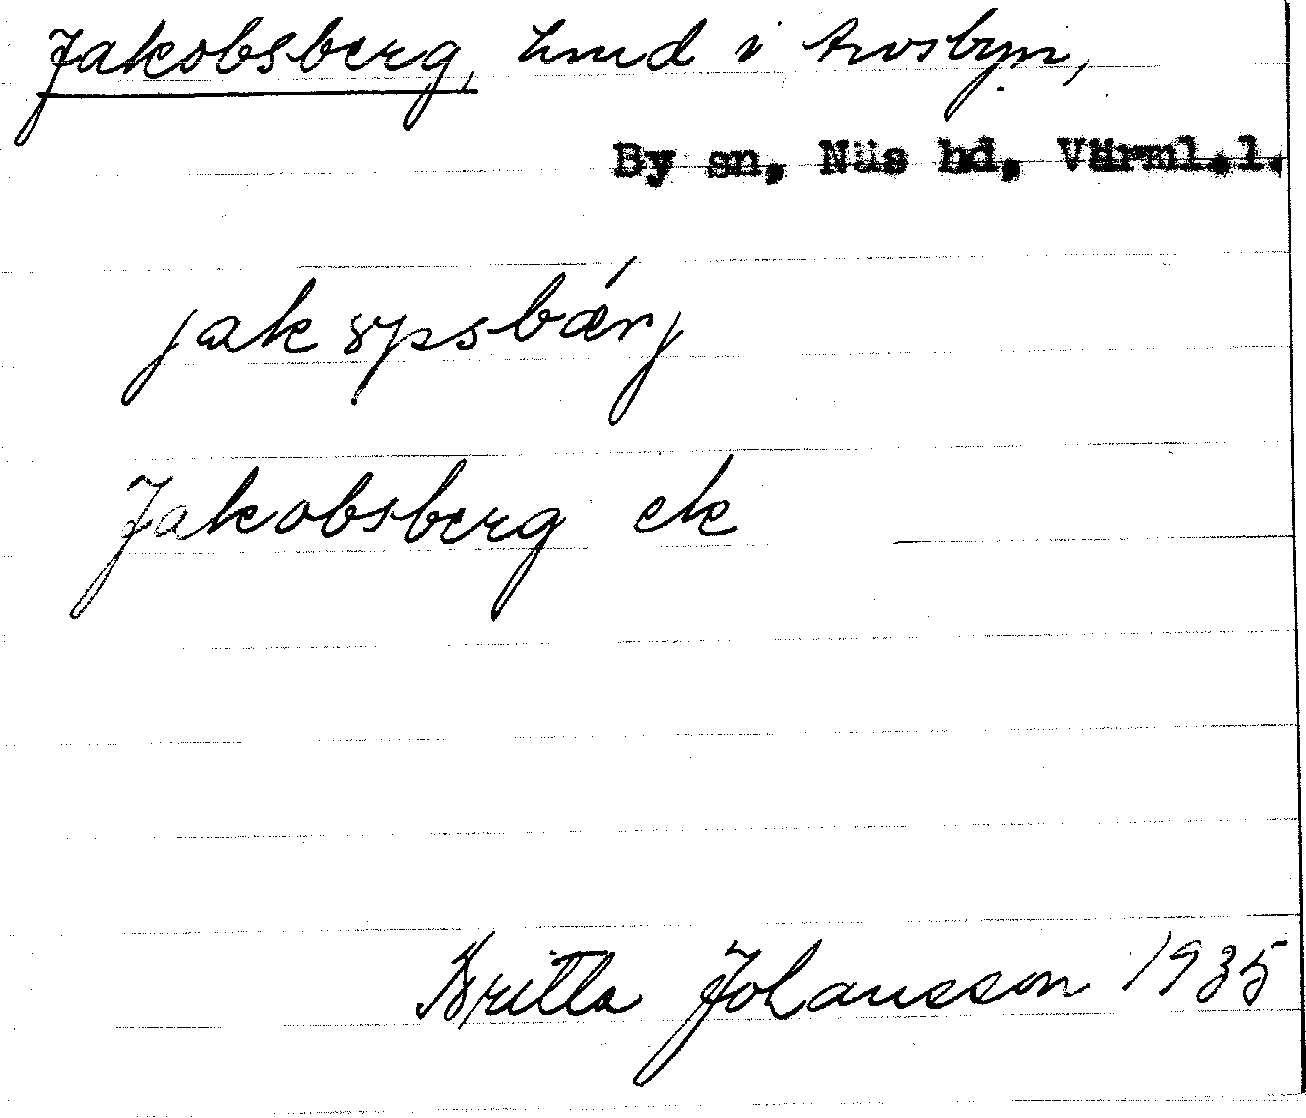 Jakobsberg, hmd i Avosbyn,
By sn, Näs hd, Värml.l.
Jakobsberg ek
Britta Johansson 1935